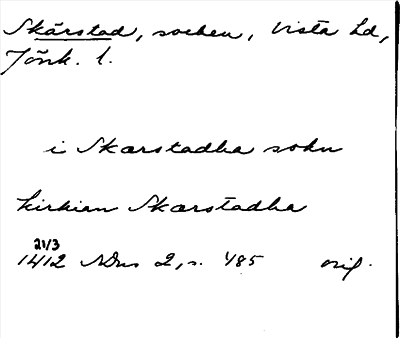 Skärstad, socken, Vista hd,
Jönk. l.
i Skarstadha sokn
kirkian Skarstadha
21/3
1412 NDns 2, s. 485 orig.